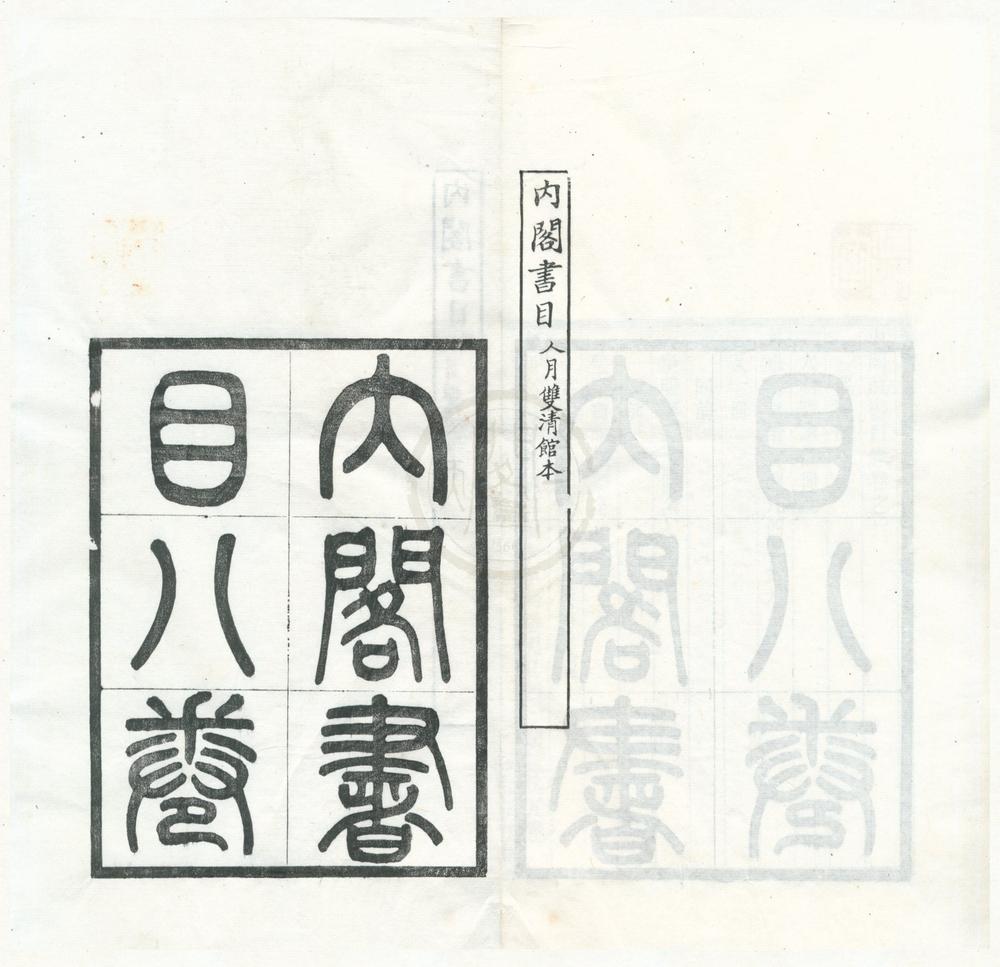 內閣書目 人月雙清館本
內閣書
目八卷